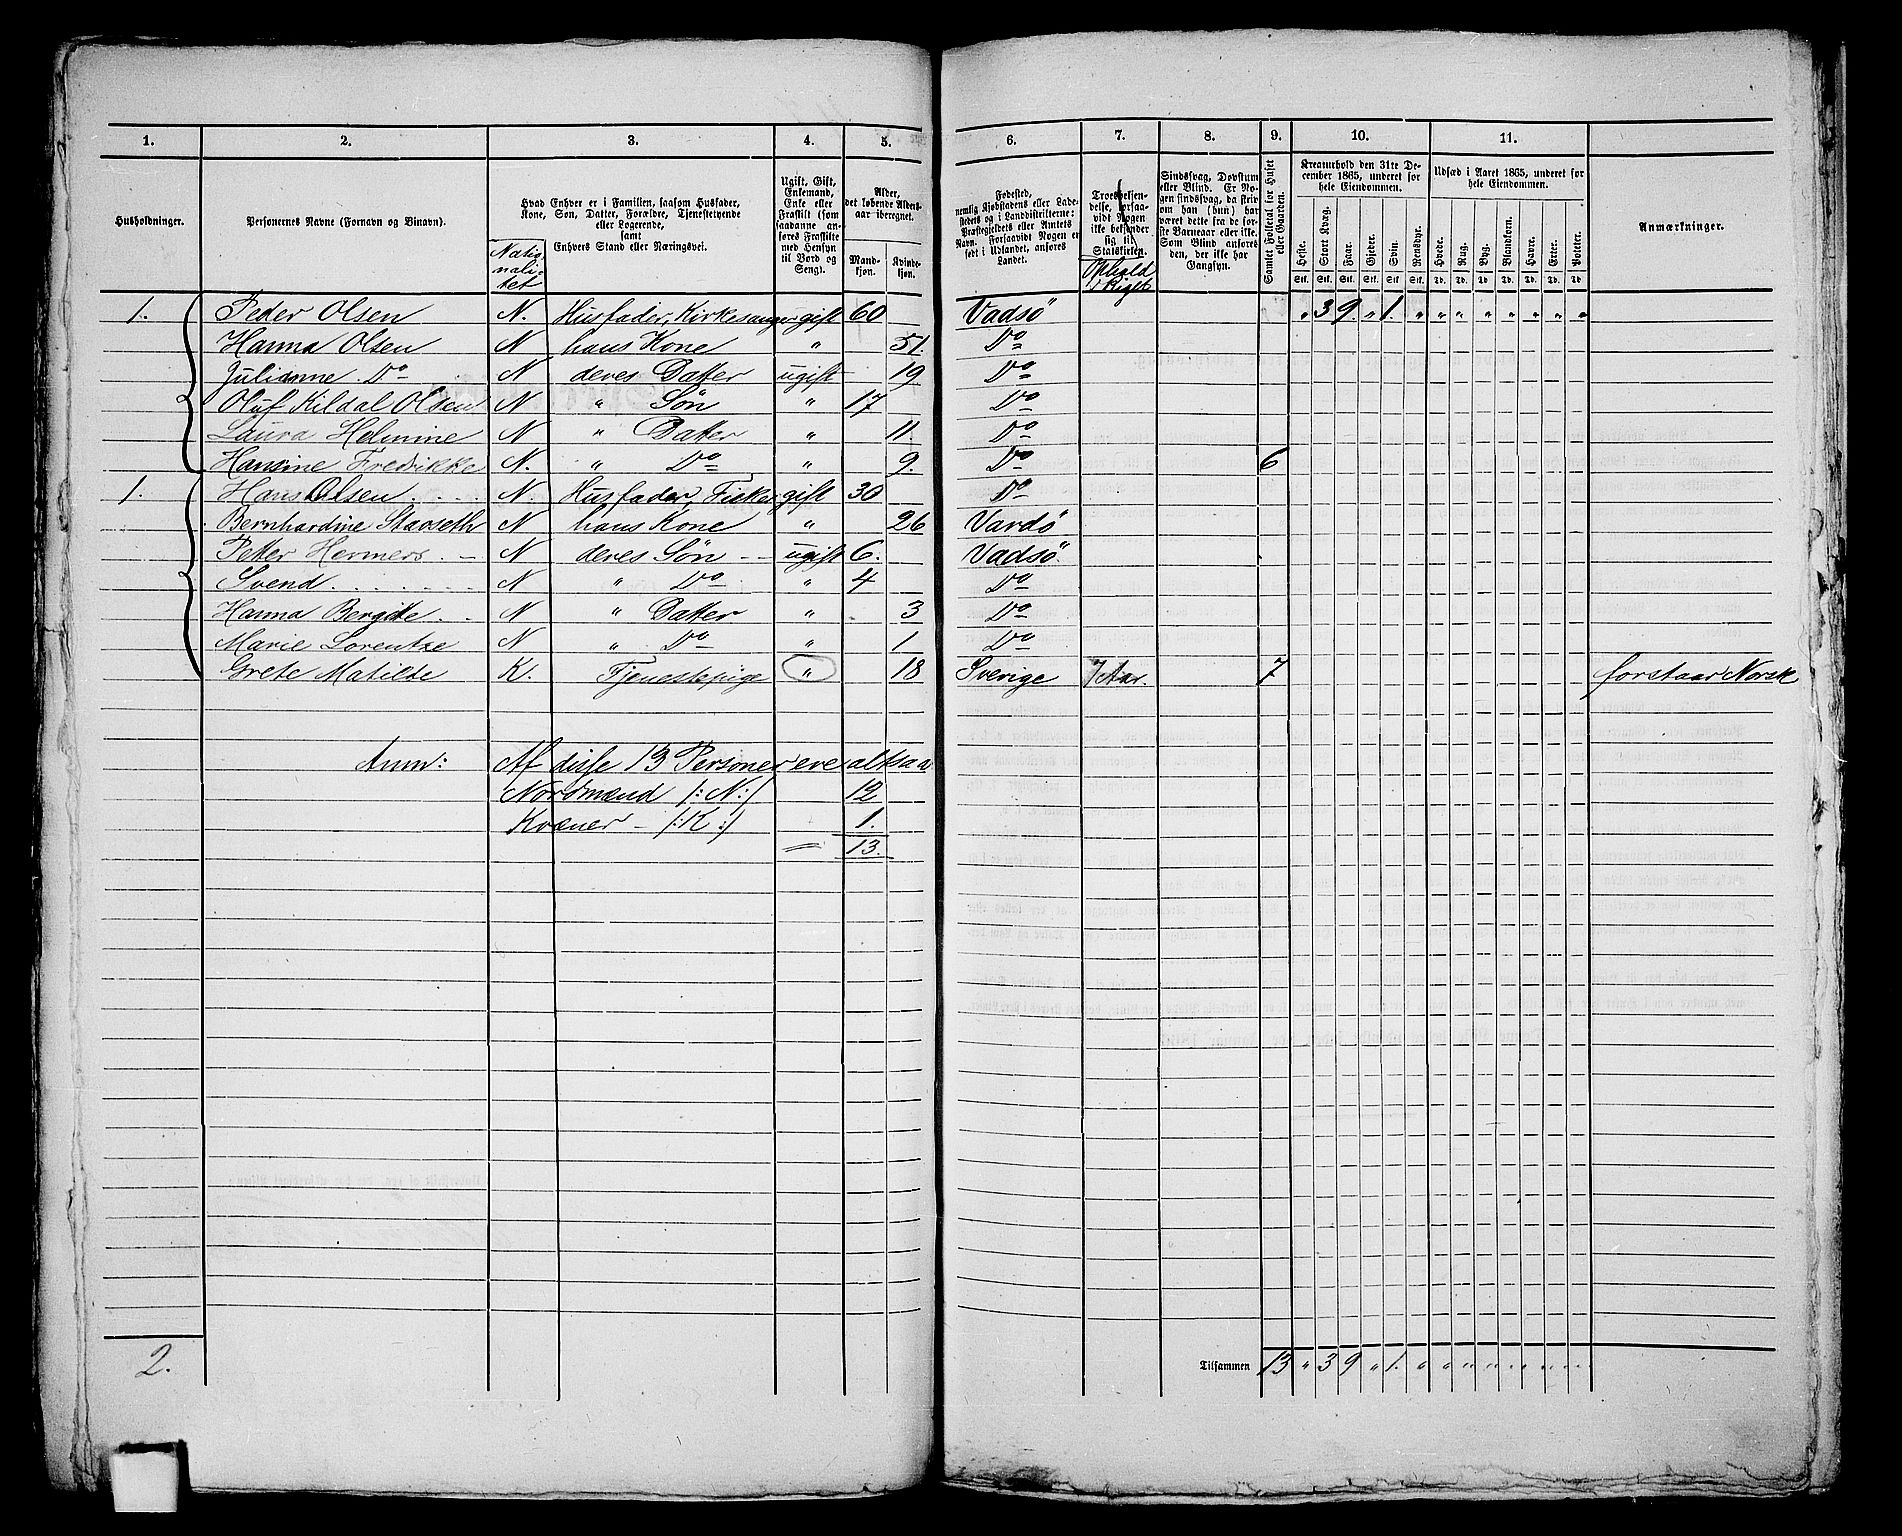 1. 2. 3. 4. 5. 6. 7. 8. 9. 10. 11.
Husholdninger.
Personernes Navne (Fornavn og Binavn).
Hvad Enhver er i Familien, saasom Husfader,
Kone, Søn, Datter, Forældre, Tjenestetyende
eller Logerende,
samt
Enhvers Stand eller Næringsvei.
Natio-
nali-
tet
Ugift, Gift,
Enkemand,
Enke eller
Fraskilt (som
saadanne an-
føres Fraskilte
med Hensyn
til Bord og
Seng).
Alder,
det løbende Alders-
aar iberegnet.
Mand-
kjøn.
Kvinde-
kjøn.
Fødested,
nemlig Kjøbstadens eller Lade-
stedets og i Landdistrikterne:
Præstegjeldets eller Amtets
Navn. Forsaavidt Nogen er
født i Udlandet, anføres
Landet.
Troesbekjen-
delse, forsaa-
vidt Nogen
ikke bekjender
sig til
Statskirken.
Ophold
i Riget
Sindssvag, Døvstum
eller Blind. Er No-
gen sindssvag, da skriv
om han (hun) har
været dette fra de før-
ste Barneaar eller ikke.
Som Blind anføres
den, der ikke har
Gangsyn.
Samlet Folketal for Huset
eller Gaarden.
Kreaturhold den 31te De-
cember 1865, underet for
hele Eiendommen.
Heste. Stort Kvæg. Faar. Gjeder. Svin. Rensdyr.
Stk. Stk. Stk. Stk. Stk. Stk.
Udsæd i Aaret 1865, underet for
hele Eiendommen.
Hvede. Rug. Byg. Blandkorn. Havre. Erter. Poteter.
Td. Td. Td. Td. Td. Td. Td
Anmærkninger.
1. Peder Olsen N. Husfader, Kirkesanger gift 60 Vadsö " 3 9. " 1. " " " " " " " "
Hanna Olsen N hans Kone " 51. Do
Julianne Do N deres Datter ugift 19 Do
Oluf Kildal Olsen N " Søn " 17 Do
Laura Helmine N " Datter " 11. Do
Hansine Fredrikke N. " Do " 9. Do 6
1. Hans Olsen N. Husfader, Fisker gift 30 Do
Bernhardine Stavseth N hans Kone " 26 Vardö
Petter Hermers N deres Søn ugift 6. Vadsö.
Svend N " Do " 4 Do
Hanna Bergitte N " Datter " 3 Do
Marie Lorentze N " Do " 1 Do
Grete Matilde K. Tjenestepige " 18 Sverige 7 Aar. 7 forstaar Norsk
Anm: Af disse 13 Personer ere altsaa
Nordmænd /: N:/ 12
Kvæner - /: K :/ 1.
= 13.
2. Tilsammen 13 " 3 9 " 1. " " " " " " " "